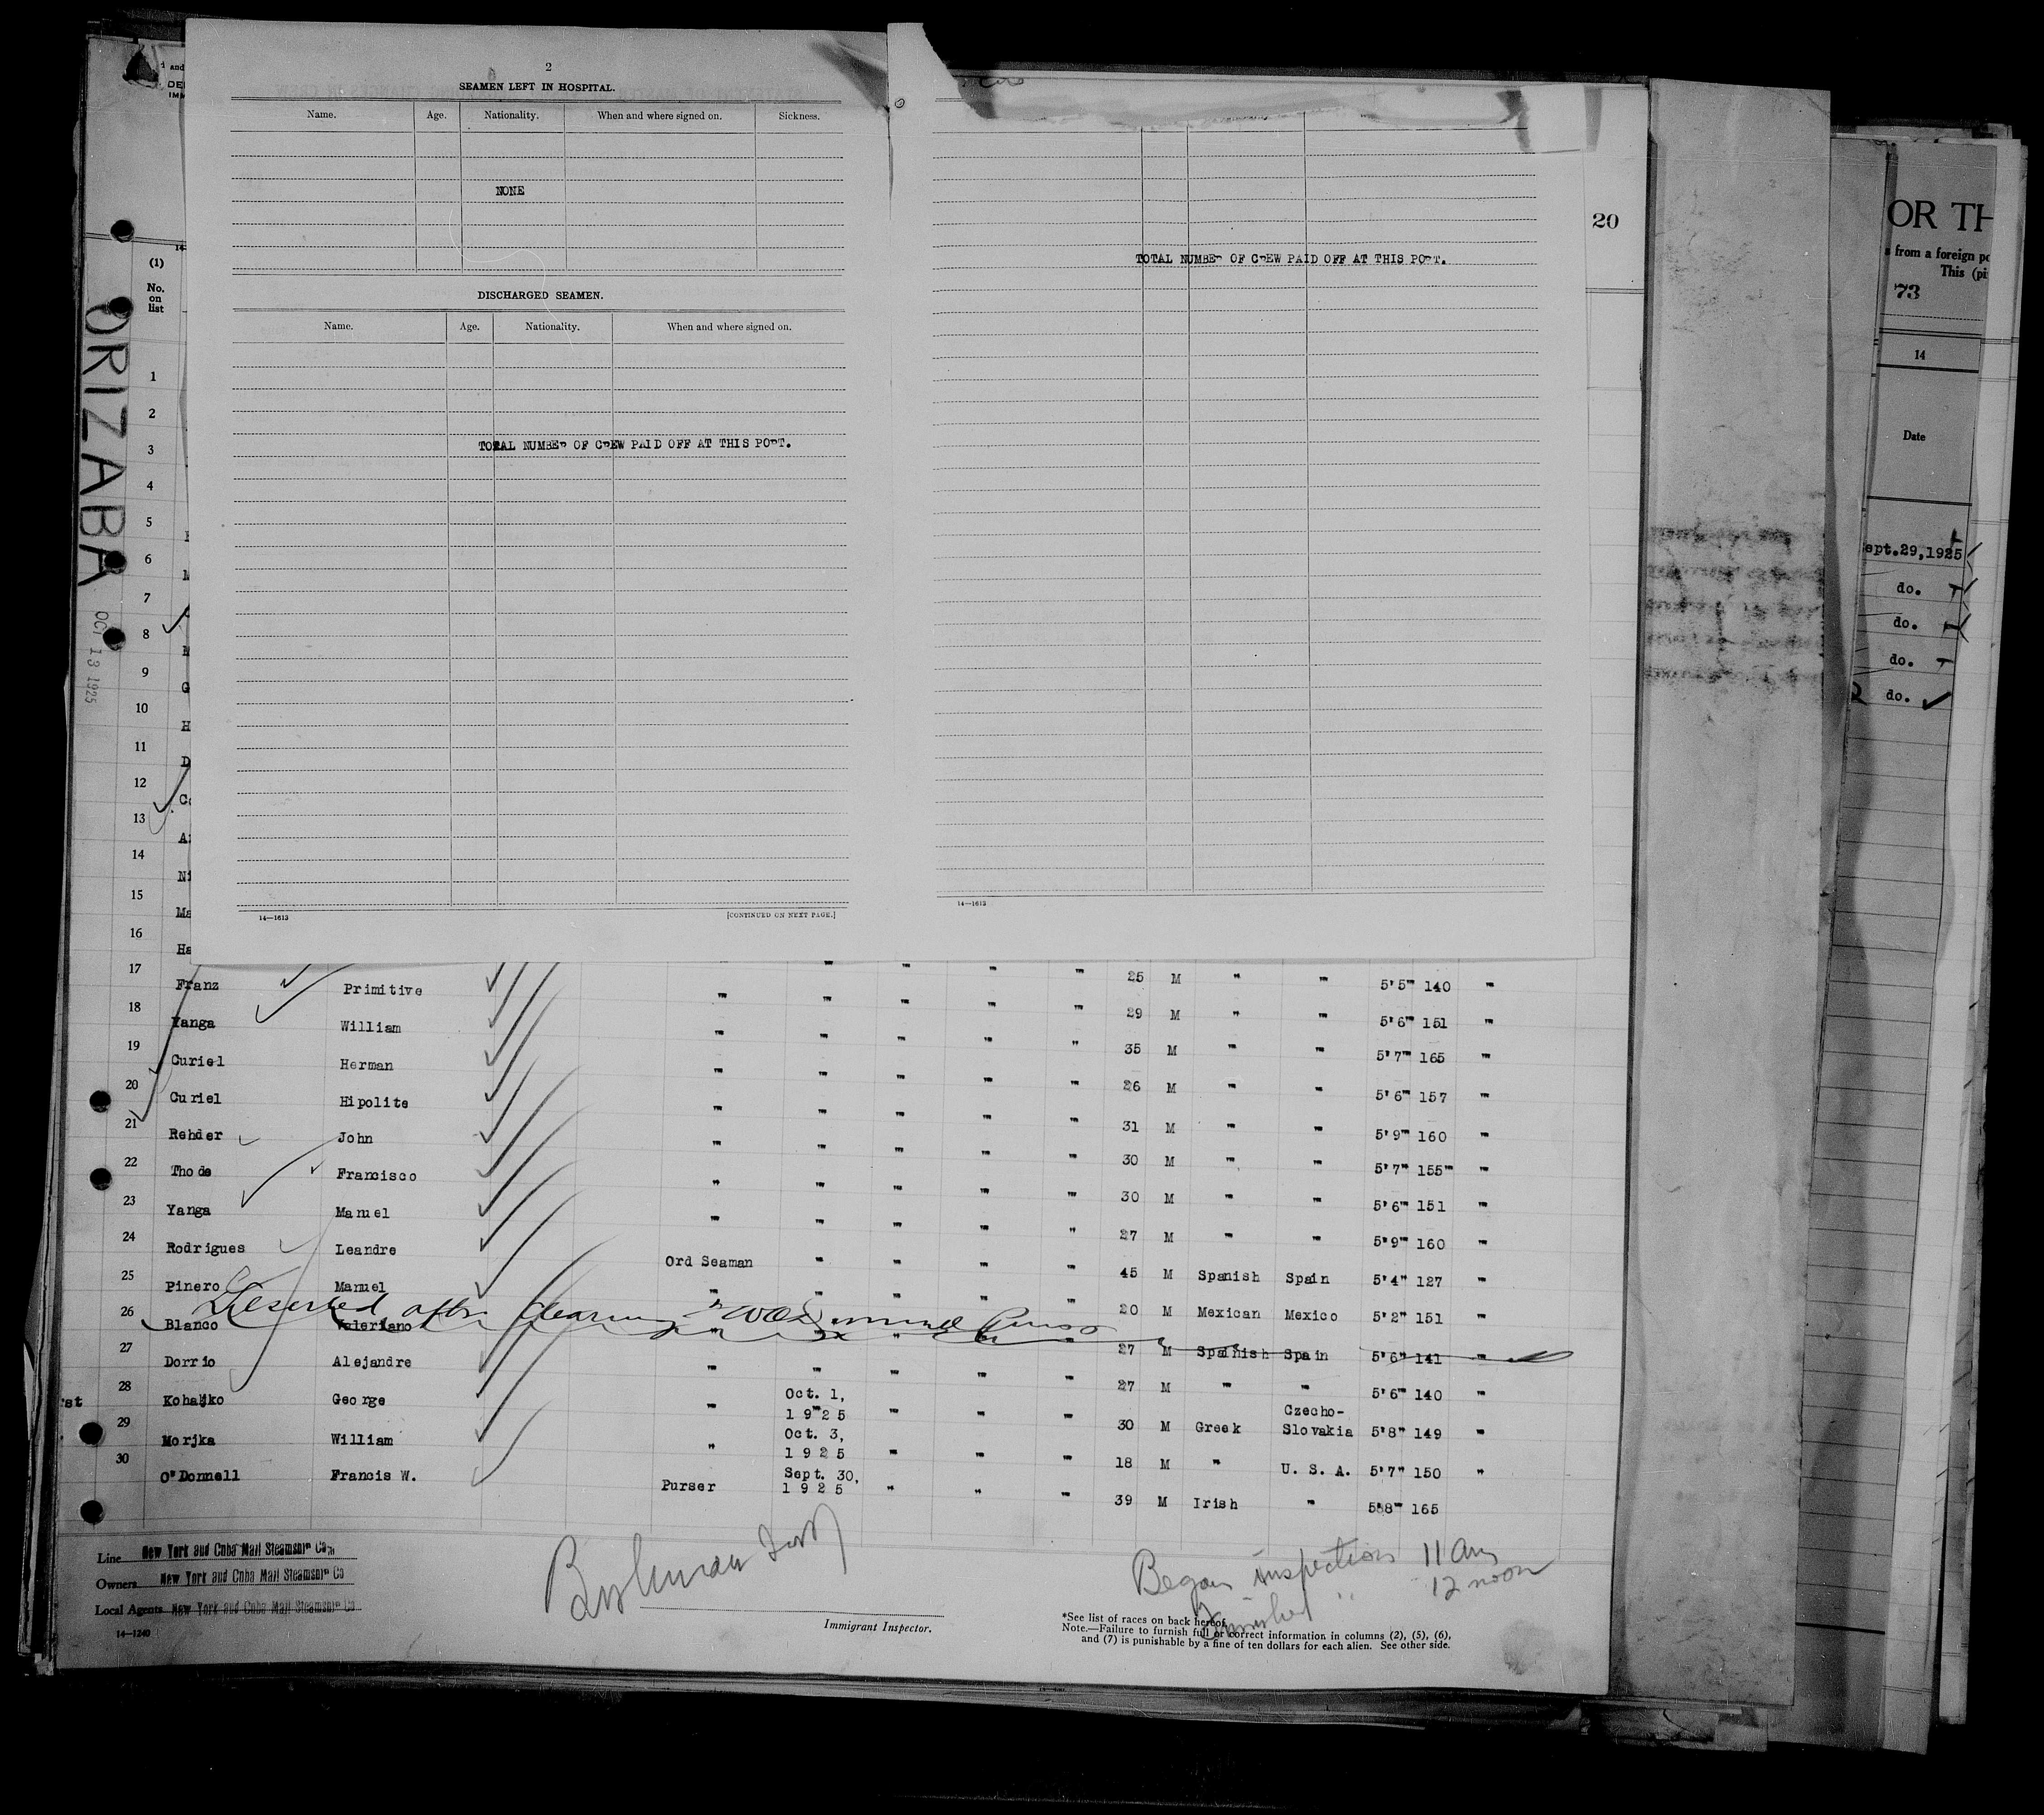 2
SEAMEN LEFT IN HOSPITAL.
Name. Age. Nationality. When and where signed on. Sickness.
NONE
DISCHARGED SEAMEN.
Name. Age. Nationality. When and where signed on.
TOTAL NUMBER OF CREW PAID OFF AT THIS PORT.
14—1613 [CONTINUED ON NEXT PAGE.]
TOTAL NUMBER OF CREW PAID OFF AT THIS PORT.
14—1613
20
ORIZABA
OCT 13 1925
(1)
No.
on
list
1
2
3
4
5
6
7
8
9
10
11
12
13
14
15
16
17
Franz Primitive " " " " 25 M " " 5'5" 140 "
18
Yanga William " " " " " 29 M " " 5'6" 151 "
19
Curiel Herman " " " " " 35 M " " 5'7" 165 "
20
Curiel Hipolite " " " " " 26 M " " 5'6" 157 "
21
Rehder John " " " " " 31 M " " 5'9" 160 "
22
Thode Francisco " " " " " 30 M " " 5'7" 155" "
23
Yanga Manuel " " " " " 30 M " " 5'6" 151 "
24
Rodrigues Leandre " " " " " 27 M " " 5'9" 160 "
25
Pinero Manuel Ord Seaman " " " " 45 M Spanish Spain 5'4" 127 "
Deserted after clearing
26
Blanco Valeriano " " " " " 20 M Mexican Mexico 5'2" 151 "
27
Dorrio Alejandre " " " " 27 M Spanish Spain 5'6" 141 "
28
Kohajko George " " " " " 27 M " " 5'6" 140 "
29
Morjka William " Oct. 1, 1925 " " " 30 M Greek Czecho-Slovakia 5'8" 149 "
30
O'Donnell Francis W. " Oct. 3, 1925 " " " 18 M " U. S. A. 5'7" 150 "
Purser Sept. 30, 1925 " " " 39 M Irish " 5'8" 165
Line New York and Cuba Mail Steamship Co.
Owners New York and Cuba Mail Steamship Co
Local Agents New York and Cuba Mail Steamship Co
14—1240
Immigrant Inspector.
Began inspection 11 am
Finished " 12 noon
*See list of races on back hereof.
Note.—Failure to furnish full or correct information in columns (2), (5), (6),
and (7) is punishable by a fine of ten dollars for each alien. See other side.
OR TH
from a foreign po
This (pi
73
14
Date
ept.29,1925
do.
do.
do.
do.